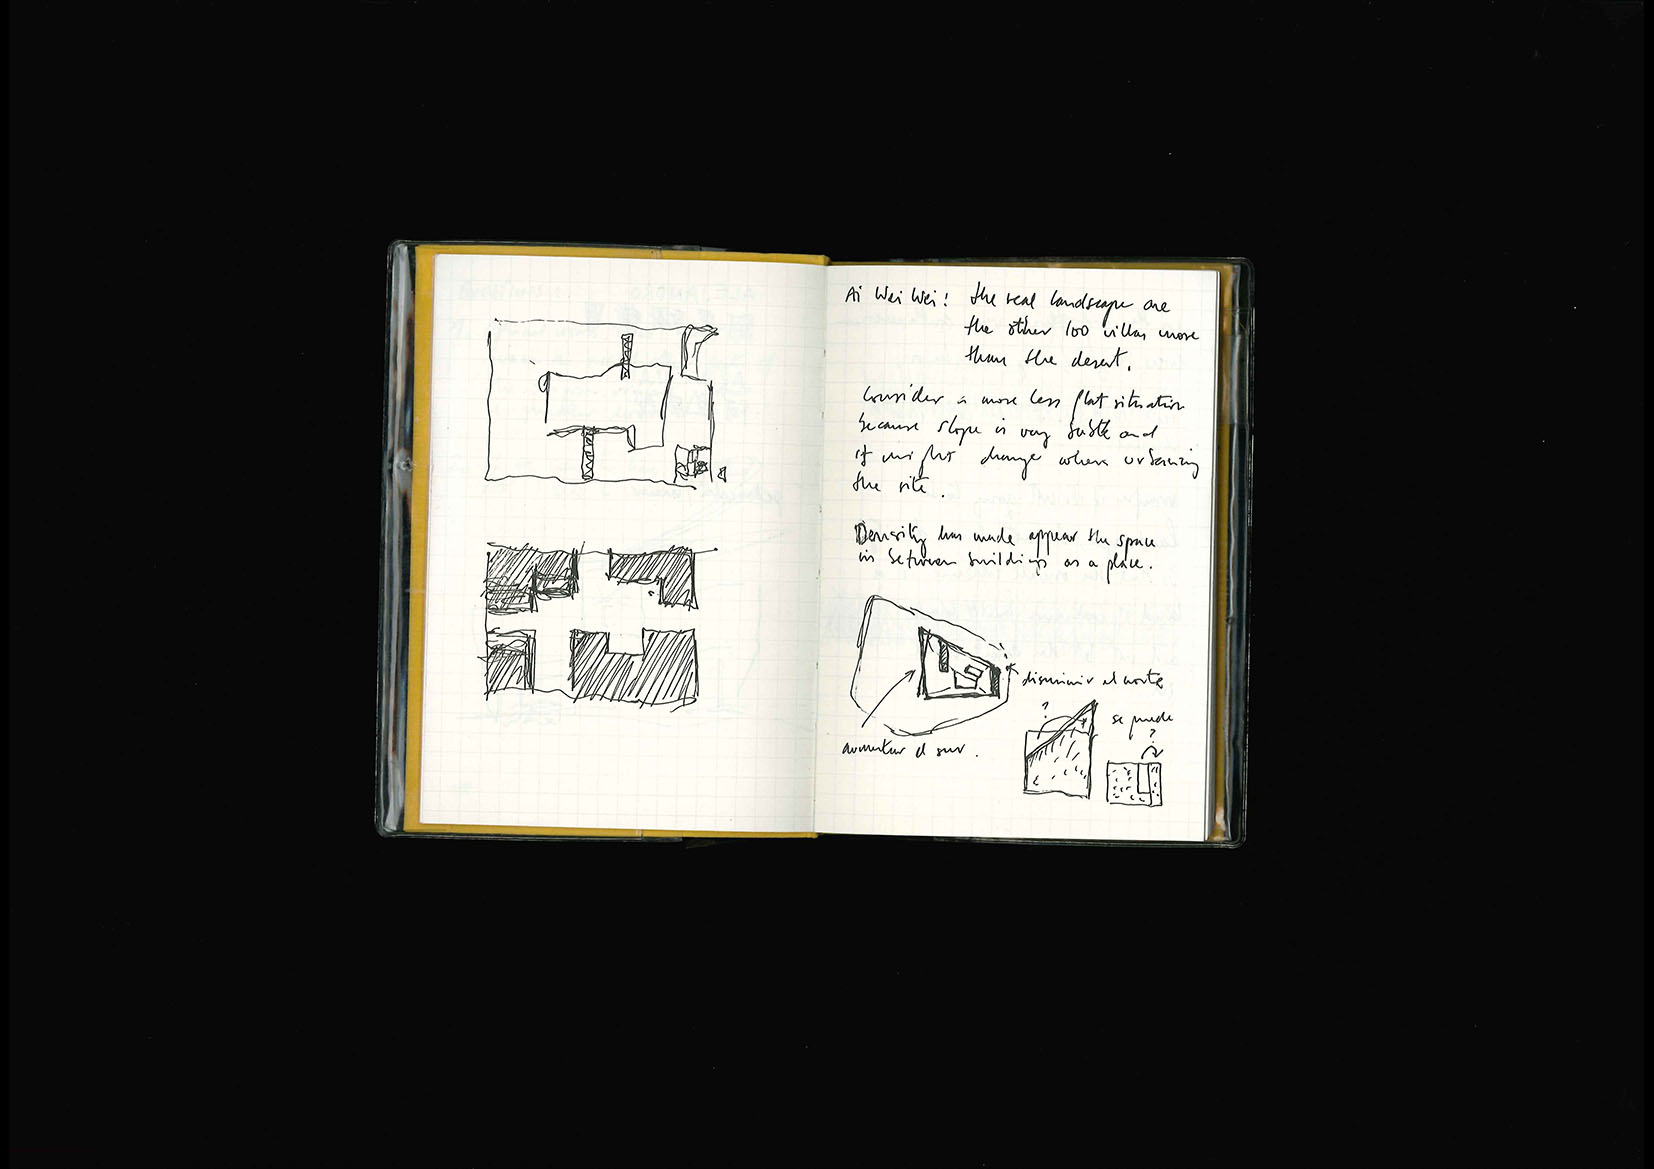 Ai Wei Wei! the real landscape are
the other 100 villas more
than the desert.
Consider a more less flat situation
because slope is very subtle and
it might change when urbanizing
the site.
Density has made appear the space
in between buildings as a place.
disminuir el norte
?
se puede
?
aumentar el sur.